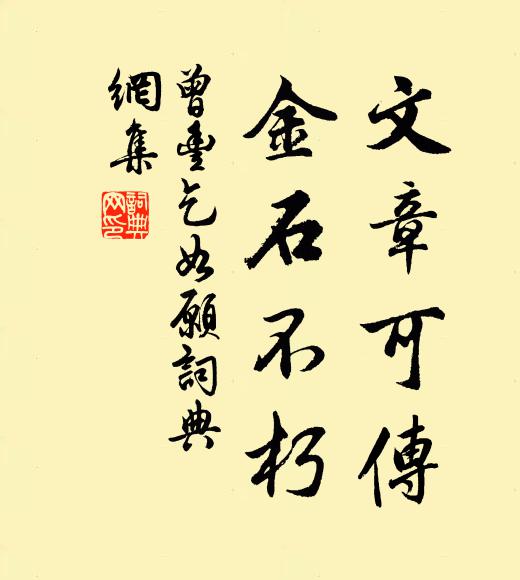 文章可傳
金石不朽
曾豐乞如願詞典
網集
詞典網印